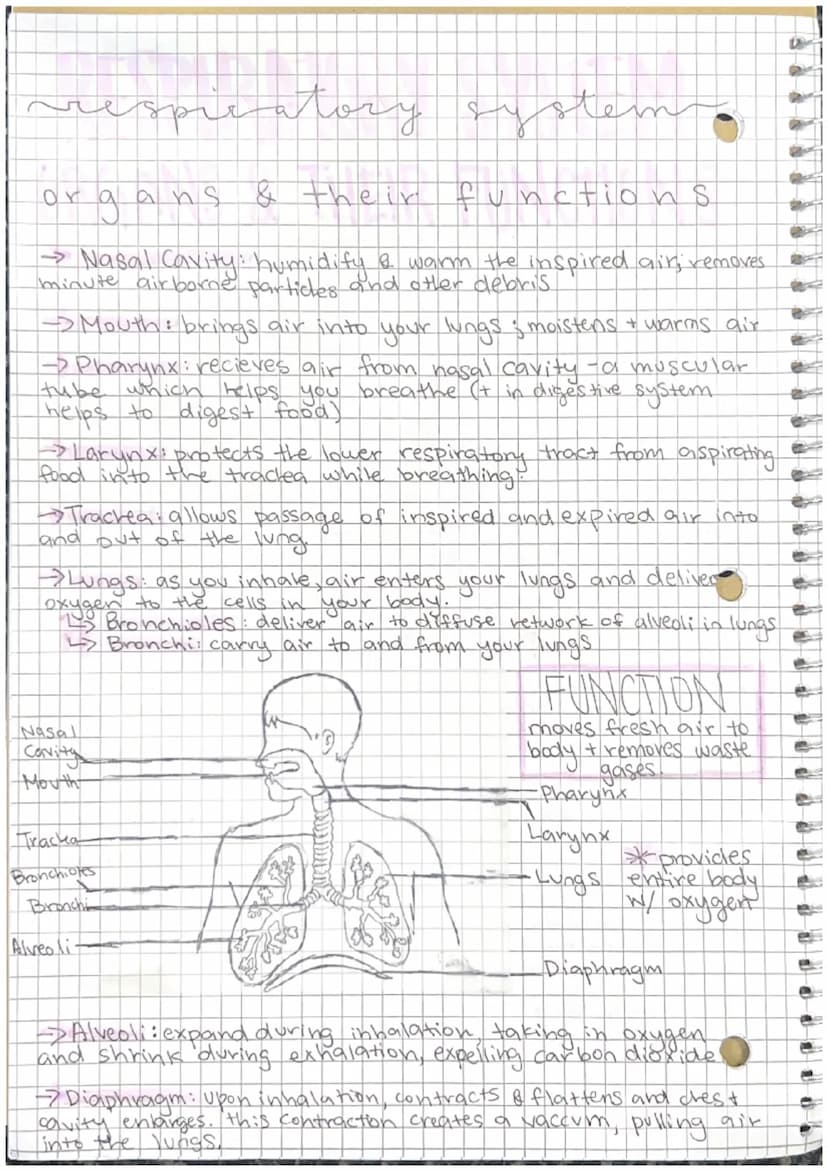 respiratory system
organs & their functions
→ Nasal Cavity: humidify & warm the inspired air; removes
minute airborne particles and other debris
→ Mouth: brings air into your lungs; moistens + warms air
→ Pharynx: recieves air from nasal cavity - a muscular
tube which helps you breathe (+ in digestive system
helps to digest food)
→ Larynx: protects the lower respiratory tract from aspirating
food into the trachea while breathing.
→ Trachea: allows passage of inspired and expired air into
and out of the lung.
→ Lungs: as you inhale, air enters your lungs and deliver
oxygen to the cells in your body.
↳ Bronchioles: deliver air to diffuse network of alveoli in lungs
↳ Bronchi: carry air to and from your lungs
FUNCTION
moves fresh air to
body + removes waste
gases.
Nasal
Cavity
Mouth
Pharynx
Larynx
Trachea
* provides
entire body
w/ oxygen
Bronchioles
Lungs
Bronchi
Alveoli
Diaphragm
→ Alveoli: expand during inhalation, taking in oxygen
and shrink during exhalation, expelling carbon dioxide
→ Diaphragm: Upon inhalation, contracts & flattens and chest
cavity enlarges. this contraction creates a vaccum, pulling air
into the lungs.